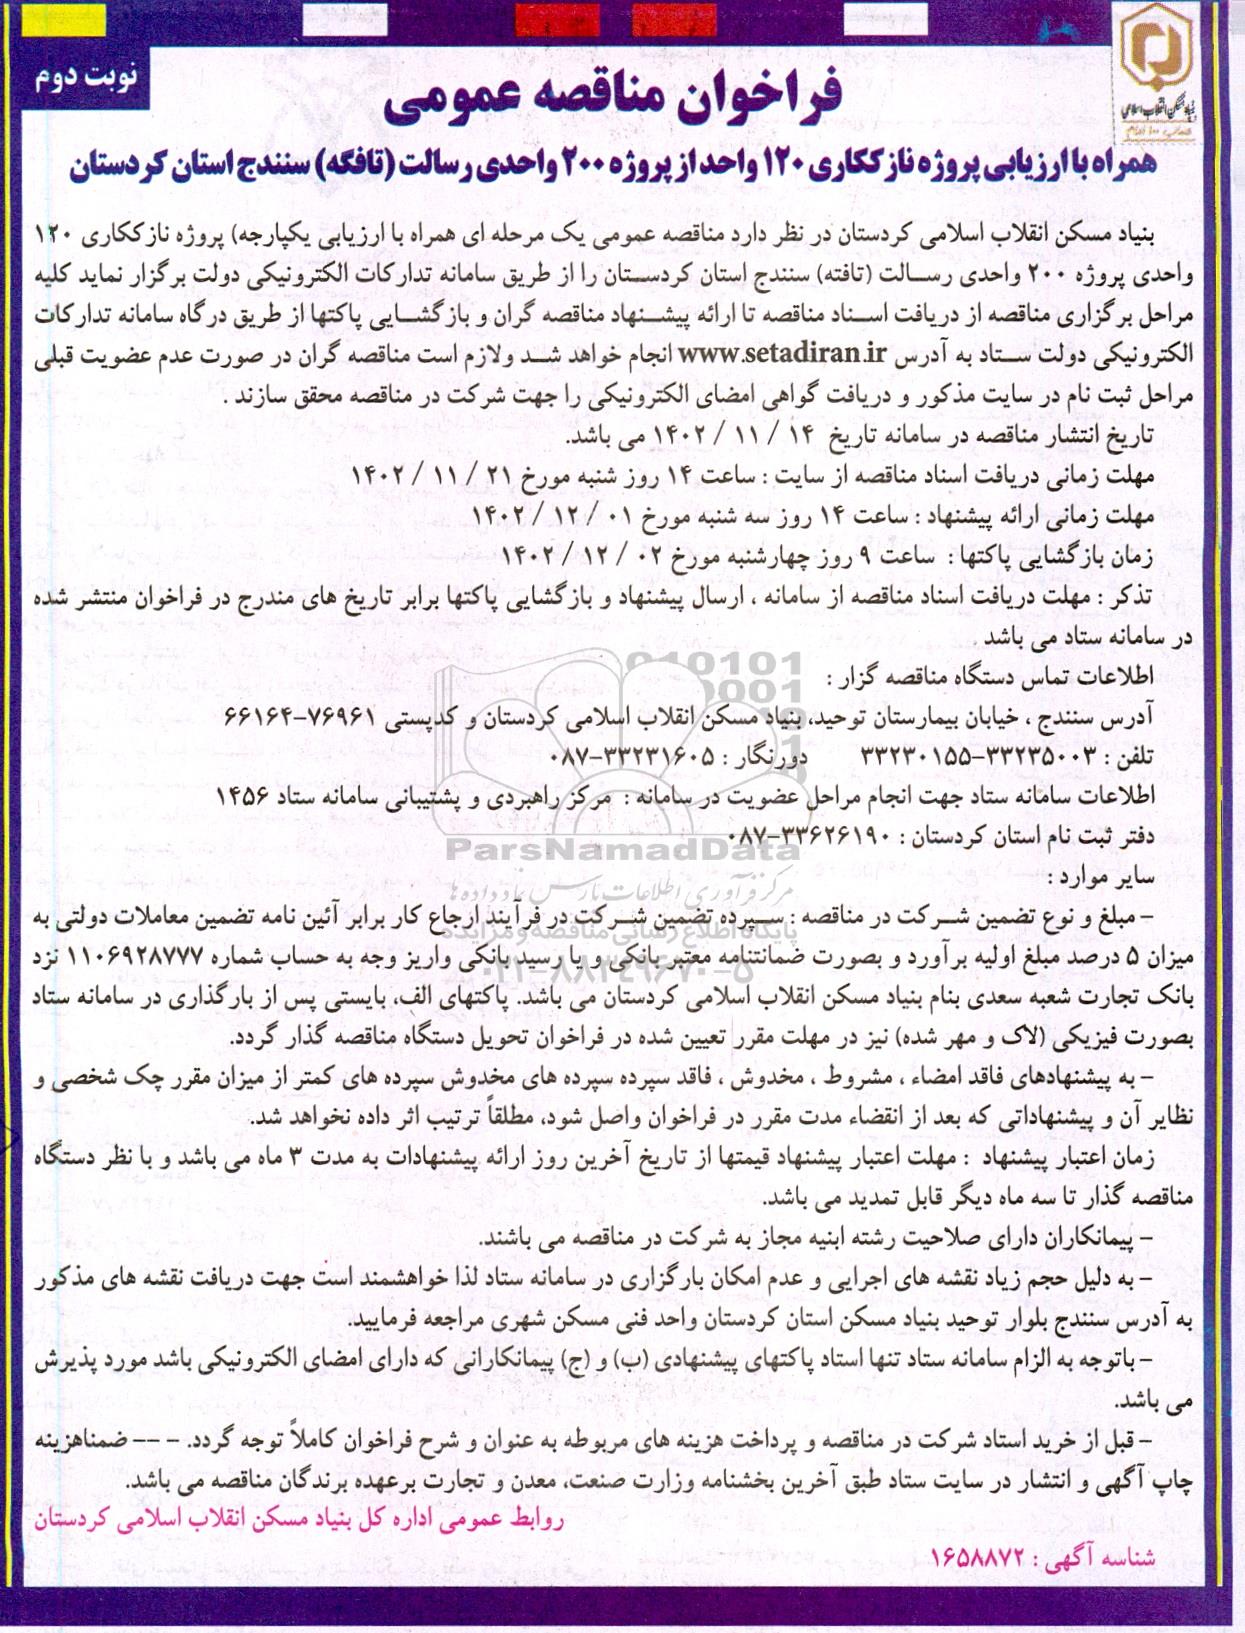 نوبت دوم
بنیاد مسکن انقلاب اسلامی
فراخوان مناقصه عمومی
همراه با ارزیابی پروژه نازککاری ۱۲۰ واحد از پروژه ۲۰۰ واحدی رسالت (تافگه) سنندج استان کردستان
بنیاد مسکن انقلاب اسلامی کردستان در نظر دارد مناقصه عمومی یک مرحله ای همراه با ارزیابی یکپارچه) پروژه نازککاری ۱۲۰
واحدی پروژه ۲۰۰ واحدی رسالت (تافته) سنندج استان کردستان را از طریق سامانه تدارکات الکترونیکی دولت برگزار نماید کلیه
مراحل برگزاری مناقصه از دریافت اسناد مناقصه تا ارائه پیشنهاد مناقصه گران و بازگشایی پاکتها از طریق درگاه سامانه تدارکات
الکترونیکی دولت ستاد به آدرس www.setadiran.ir انجام خواهد شد ولازم است مناقصه گران در صورت عدم عضویت قبلی
مراحل ثبت نام در سایت مذکور و دریافت گواهی امضای الکترونیکی را جهت شرکت در مناقصه محقق سازند .
تاریخ انتشار مناقصه در سامانه تاریخ ۱۴ / ۱۱ / ۱۴۰۲ می باشد.
مهلت زمانی دریافت اسناد مناقصه از سایت : ساعت ۱۴ روز شنبه مورخ ۲۱ / ۱۱ / ۱۴۰۲
مهلت زمانی ارائه پیشنهاد : ساعت ۱۴ روز سه شنبه مورخ ۰۱ / ۱۲ / ۱۴۰۲
زمان بازگشایی پاکتها : ساعت ۹ روز چهارشنبه مورخ ۰۲ / ۱۲ / ۱۴۰۲
تذکر : مهلت دریافت اسناد مناقصه از سامانه ، ارسال پیشنهاد و بازگشایی پاکتها برابر تاریخ های مندرج در فراخوان منتشر شده
در سامانه ستاد می باشد .
اطلاعات تماس دستگاه مناقصه گزار :
آدرس سنندج ، خیابان بیمارستان توحید، بنیاد مسکن انقلاب اسلامی کردستان و کدپستی ۷۶۹۶۱-۶۶۱۶۴
تلفن : ۳۳۲۳۵۰۰۳-۳۳۲۳۰۱۵۵ دورنگار : ۳۳۲۳۱۶۰۵-۰۸۷
اطلاعات سامانه ستاد جهت انجام مراحل عضویت در سامانه : مرکز راهبردی و پشتیبانی سامانه ستاد ۱۴۵۶
دفتر ثبت نام استان کردستان : ۳۳۶۲۶۱۹۰-۰۸۷
ParsNamadData
سایر موارد :
مرکز فرآوری اطلاعات پارس نماد داده ها
- مبلغ و نوع تضمین شرکت در مناقصه : سپرده تضمین شرکت در فرآیند ارجاع کار برابر آئین نامه تضمین معاملات دولتی به
پایگاه اطلاع رسانی مناقصه و مزایده
میزان ۵ درصد مبلغ اولیه برآورد و بصورت ضمانتنامه معتبر بانکی و یا رسید بانکی واریز وجه به حساب شماره ۱۱۰۶۹۲۸۷۷۷ نزد
۰۲۱-۸۸۳۴۹۶۷۰-۵
بانک تجارت شعبه سعدی بنام بنیاد مسکن انقلاب اسلامی کردستان می باشد. پاکتهای الف، بایستی پس از بارگذاری در سامانه ستاد
بصورت فیزیکی (لاک و مهر شده) نیز در مهلت مقرر تعیین شده در فراخوان تحویل دستگاه مناقصه گذار گردد.
- به پیشنهادهای فاقد امضاء ، مشروط ، مخدوش ، فاقد سپرده سپرده های مخدوش سپرده های کمتر از میزان مقرر چک شخصی و
نظایر آن و پیشنهاداتی که بعد از انقضاء مدت مقرر در فراخوان واصل شود، مطلقاً ترتیب اثر داده نخواهد شد.
زمان اعتبار پیشنهاد : مهلت اعتبار پیشنهاد قیمتها از تاریخ آخرین روز ارائه پیشنهادات به مدت ۳ ماه می باشد و با نظر دستگاه
مناقصه گذار تا سه ماه دیگر قابل تمدید می باشد.
- پیمانکاران دارای صلاحیت رشته ابنیه مجاز به شرکت در مناقصه می باشند.
- به دلیل حجم زیاد نقشه های اجرایی و عدم امکان بارگزاری در سامانه ستاد لذا خواهشمند است جهت دریافت نقشه های مذکور
به آدرس سنندج بلوار توحید بنیاد مسکن استان کردستان واحد فنی مسکن شهری مراجعه فرمایید.
- باتوجه به الزام سامانه ستاد تنها استاد پاکتهای پیشنهادی (ب) و (ج) پیمانکارانی که دارای امضای الکترونیکی باشد مورد پذیرش
می باشد.
- قبل از خرید استاد شرکت در مناقصه و پرداخت هزینه های مربوطه به عنوان و شرح فراخوان کاملاً توجه گردد. - -- ضمناهزینه
چاپ آگهی و انتشار در سایت ستاد طبق آخرین بخشنامه وزارت صنعت، معدن و تجارت برعهده برندگان مناقصه می باشد.
روابط عمومی اداره کل بنیاد مسکن انقلاب اسلامی کردستان
شناسه آگهی : ۱۶۵۸۸۷۲